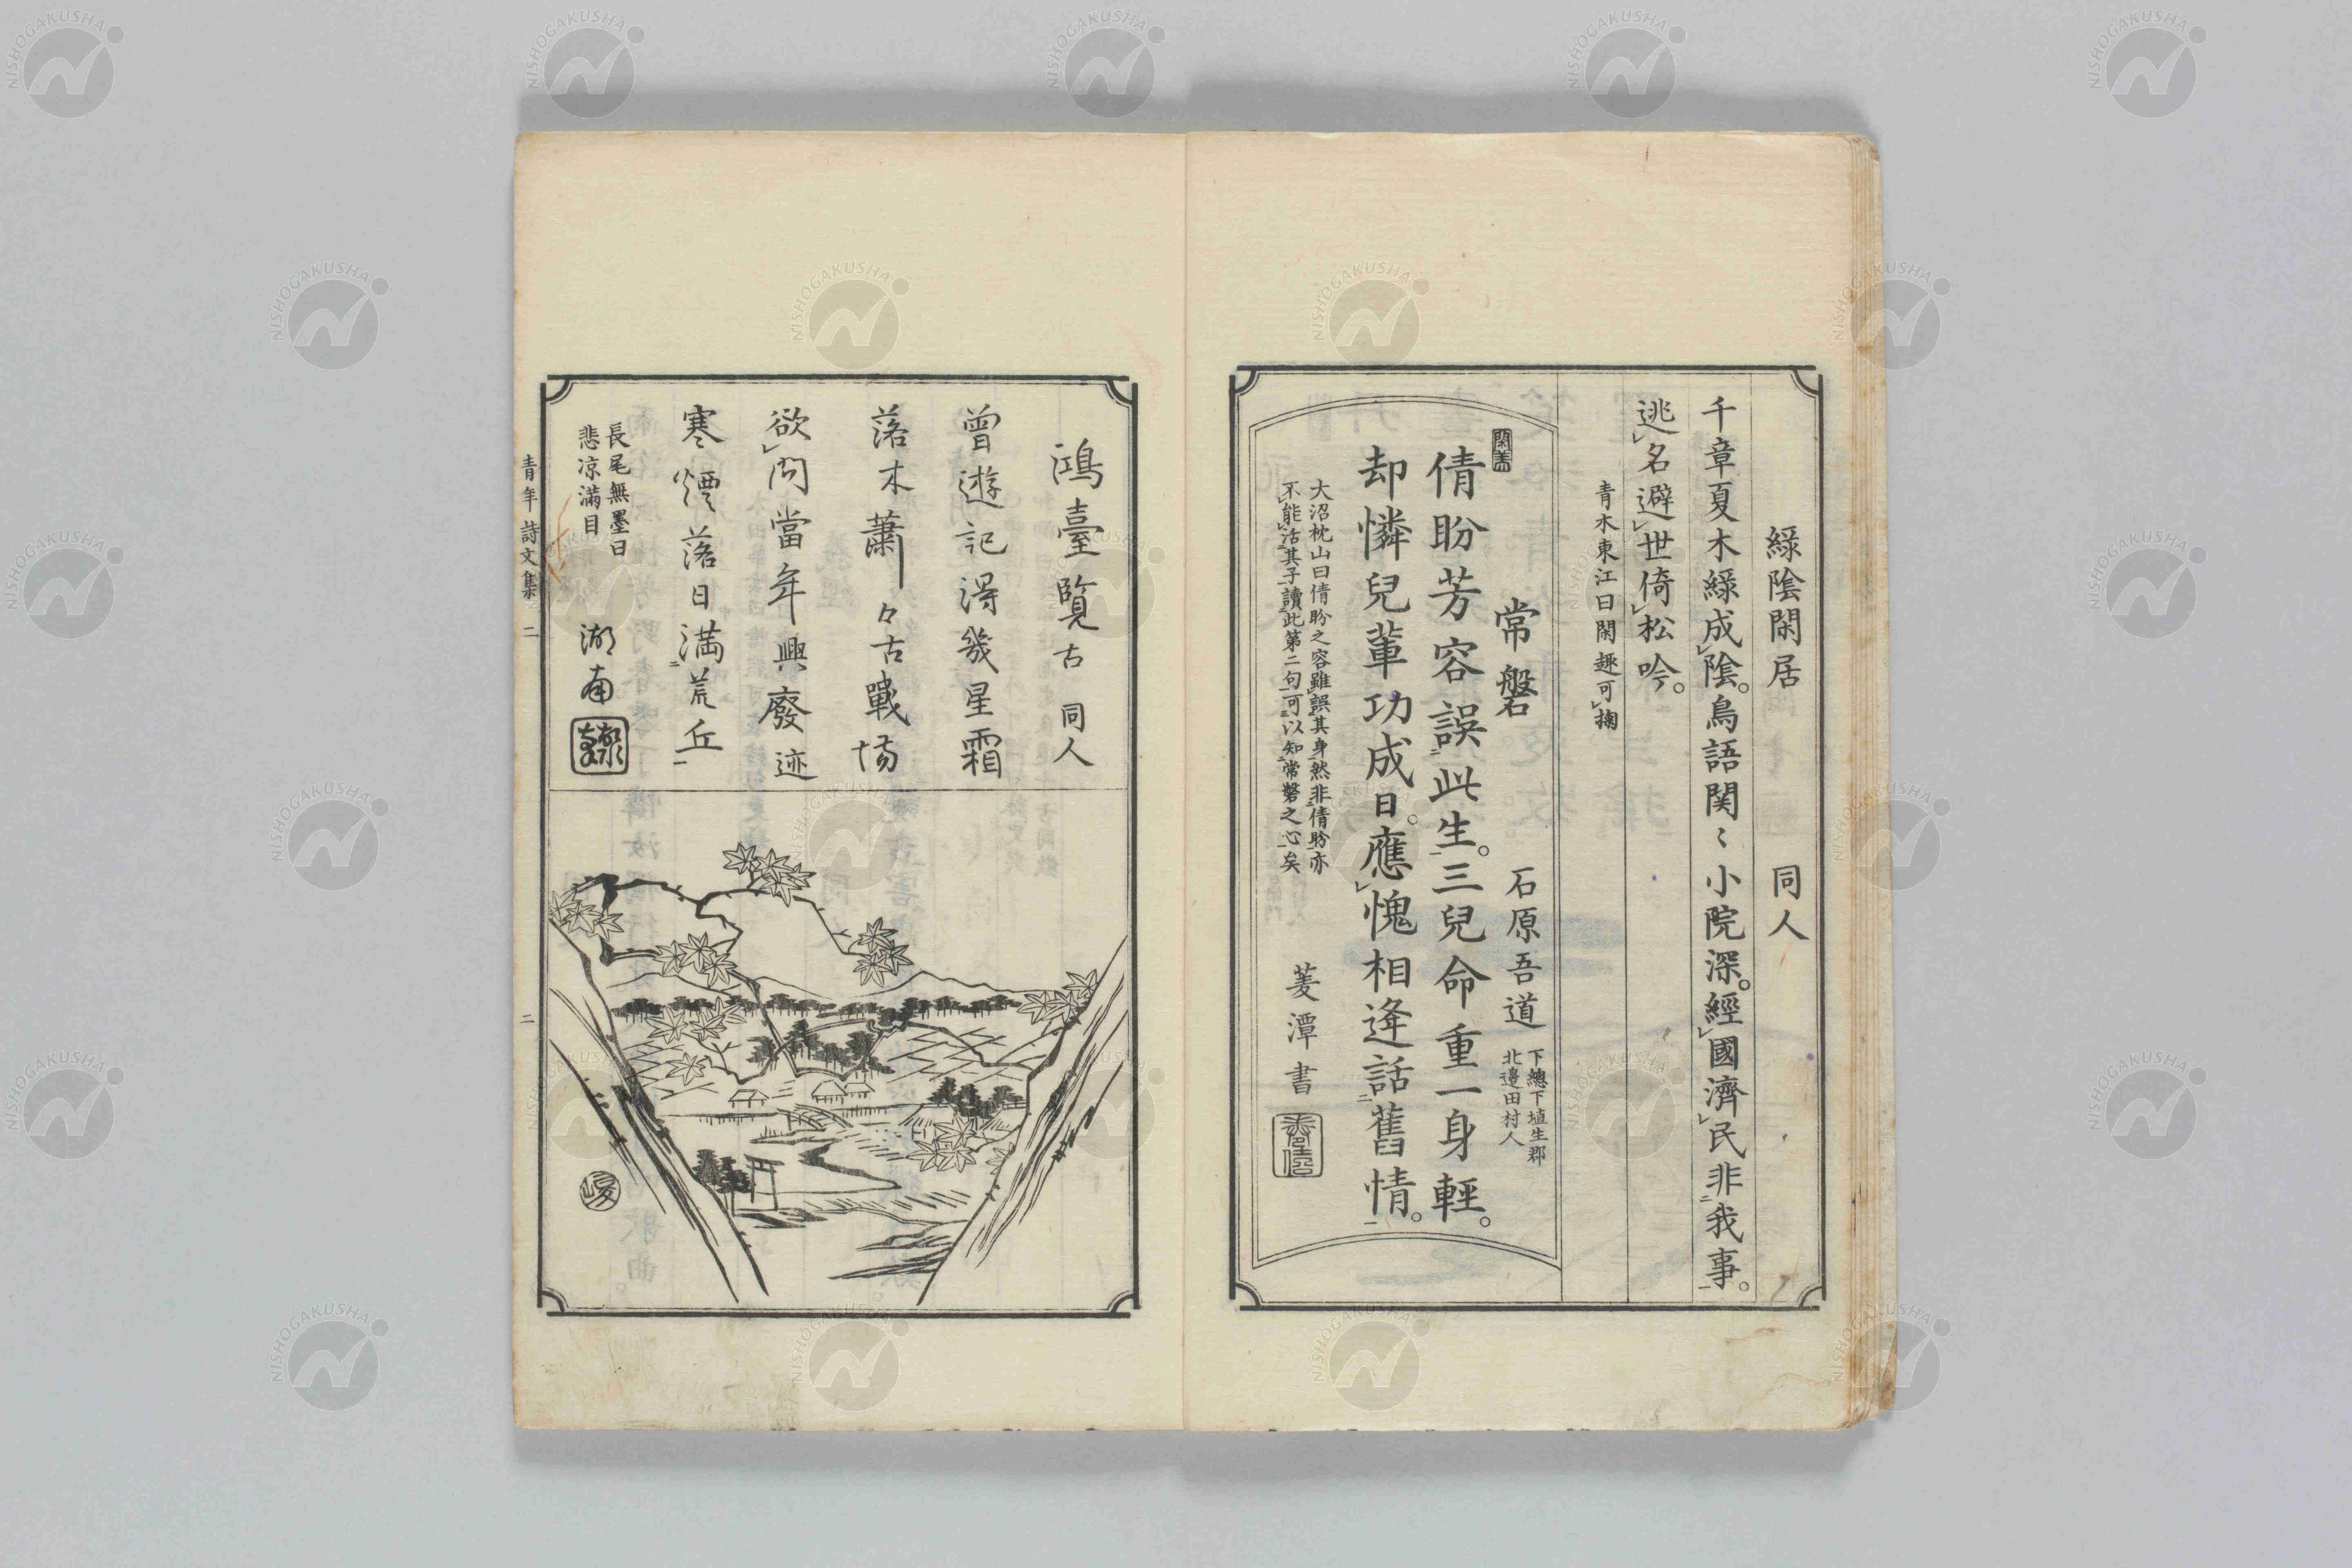 綠陰閑居　同人
千章夏木綠成陰。鳥語関〻小院深。經國濟民非我事。
逃名避世倚松吟。
青木東江曰閑趣可掬
常磐　石原吾道　下總下埴生郡
北邊田村人
倩盼芳容誤此生。三兒命重一身輕。
却憐兒輩功成日。應愧相逢話舊情。
大沼枕山曰倩盼之容雖誤其身然非倩盼亦
不能活其子讀此第二句可以知常磐之心矣
菱潭書
鴻臺覽古　同人
曾遊記得幾星霜
落木蕭々古戰場
欲問當年興廢迹
寒煙落日満荒丘
長尾無墨曰
悲凉滿目
湖南
青年詩文集二　二
NISHOGAKUSHA